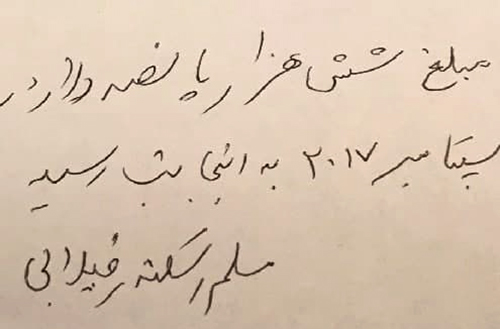 مبلغ شش هزار پانصد دلار در
سپتامبر ۲۰۱۷ به اینجانب رسید
مسلم اسکندر فیلابی